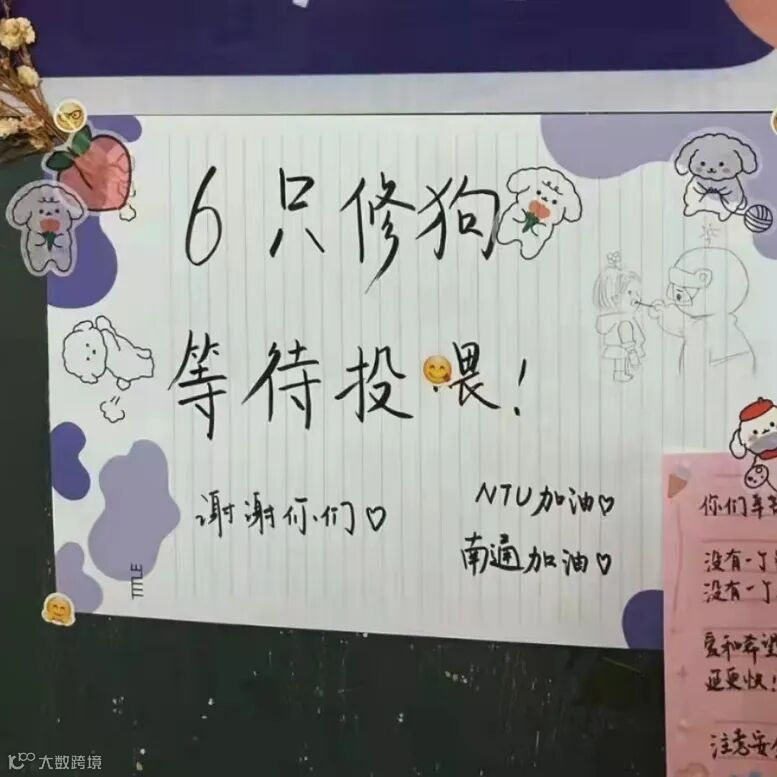 6只修狗
等待投喂!
谢谢你们♡
NTU加油♡
南通加油♡
TITLE
你们辛
没有一个
没有一个
爱和希望
更快!
注意安
大数跨境